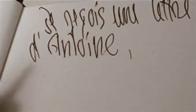 Je reçois une lettre
d'Antoine,